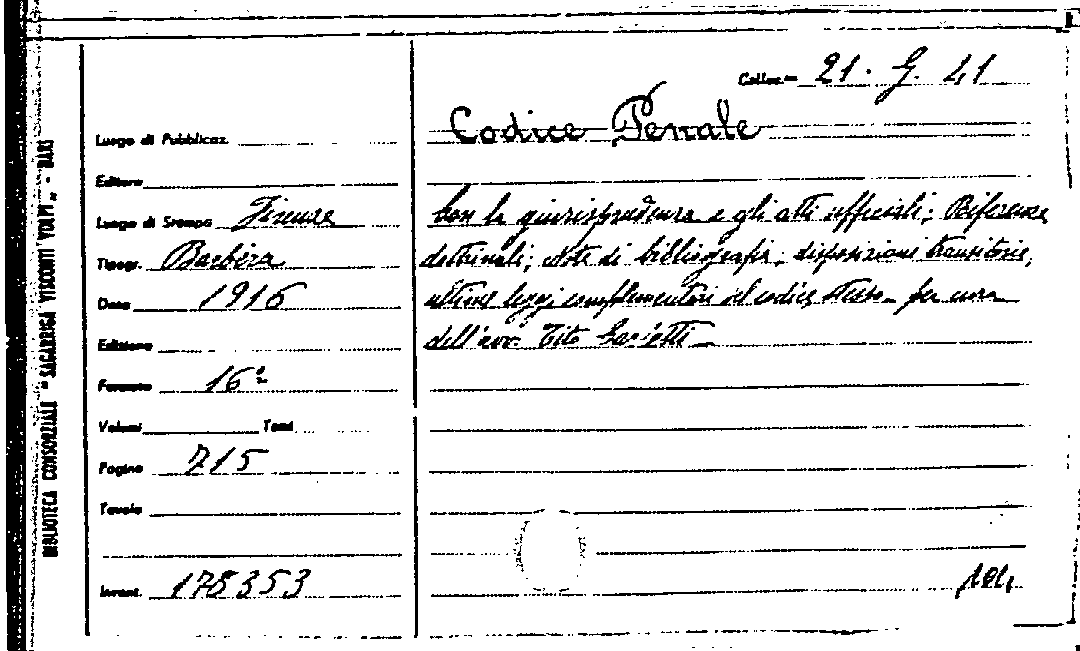 BIBLIOTECA CONSORZIALE "SAGARRIGA VISCONTI VOLPI" - BARI
Colloc. 21. G. 41
Codice Penale
Luogo di Pubblicaz.
Editore
Luogo di Stampa Firenze
Tipogr. Barbèra
Data 1916
Edizione
Formato 16º
Volumi Tomi
Pagine 715
Tavole
Invent. 178353
con la giurisprudenza e gli atti ufficiali; Riferenze
dottrinali; Note di bibliografia; disposizioni transitorie,
ultime leggi complementari del codice stesso - per cura
dell'avv. Tito